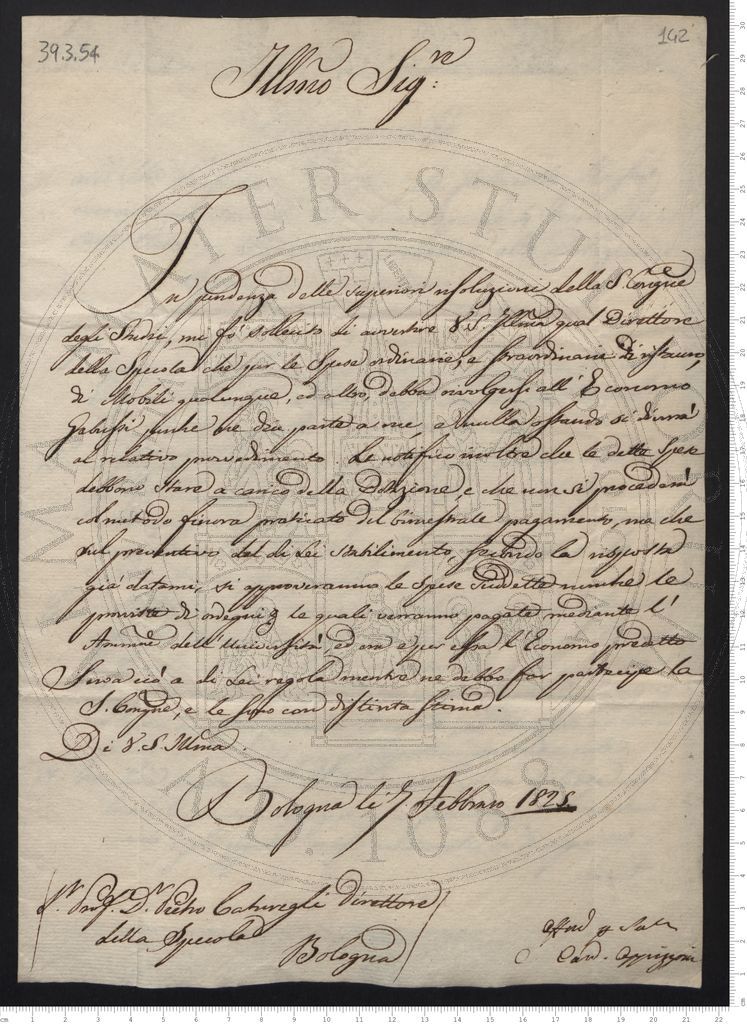 39.3.54
142
Illmo Sig.re
In pendenza delle superiori risoluzioni della S. Congne
degli Studi, mi fò sollecito di avvertire V.S. Illma qual Direttore
della Specola che per le Spese ordinarie, e straordinarie di ristauro,
di Mobili qualunque, ed altro, debba rivolgersi all' Economo
Gabussi, perchè ne dia parte a me, e nulla ostando si divrà
al relativo provvedimento. Le notifico inoltre che le dette Spese
debbono stare a carico della Dotazione, e che non si procederà
col metodo finora praticato del bimestrale pagamento, ma che
sul preventivo del di Lei Stabilimento, secondo la risposta
già datami, si approveranno le Spese suddette nonche le
proviste di ordegni le quali verranno pagate mediante l'
Ammne dell' Università, ed ora e per essa l'Economo predetto
Serva ciò a di Lei regola mentre ne debbo far partecipe la
S. Congne, e le sono con distinta stima.
Di V.S. Illma.
Bologna li 7. Febbraio 1825
Sr. Prof. Dr. Pietro Caturegli Direttore
della Specola
Bologna
Card. Oppizzoni
ALMA MATER STUDIORUM
A.D. 1088